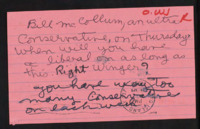 O.W
Bill McCollum, an ultra
Conservative, on Thursday
When will you have
a liberal on as long as
this Right Winger?
you have way too
many Conservative
on each week